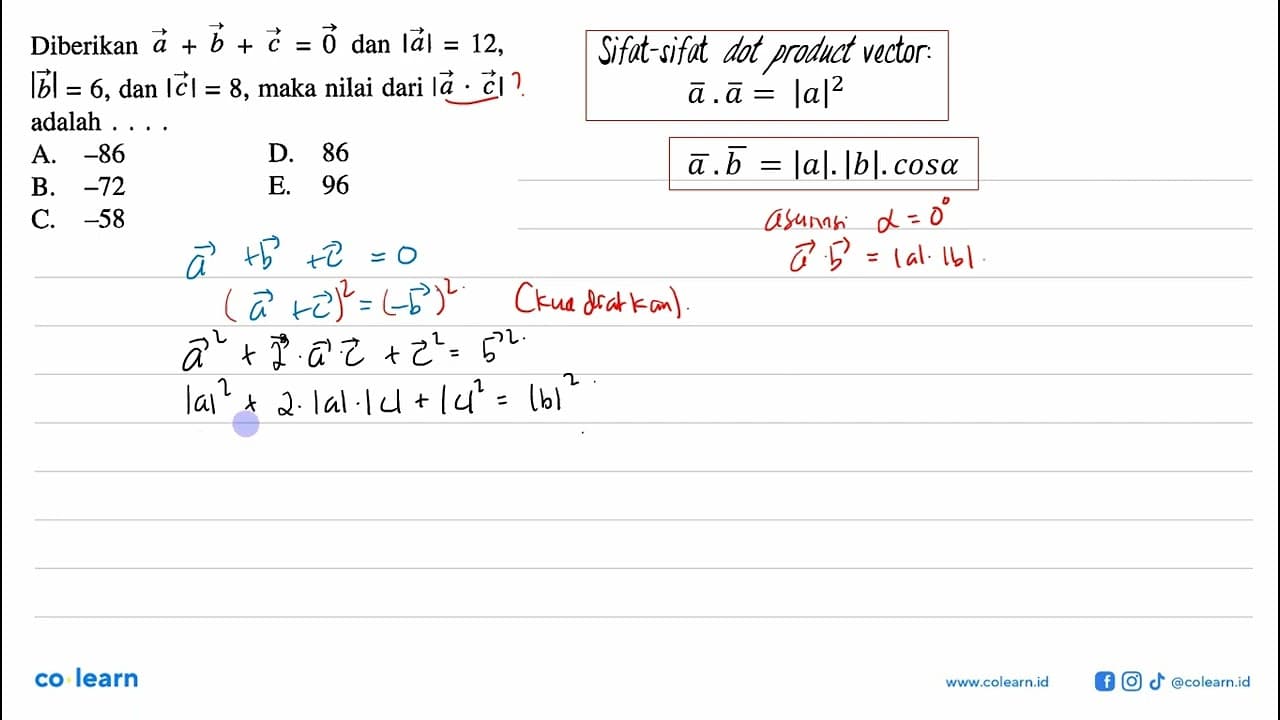 Diberikan →a + →b + →c = →0 dan |→a| = 12,
|→b| = 6, dan |→c| = 8, maka nilai dari |→a · →c| ?
adalah . . . .
A. –86
B. –72
C. –58
D. 86
E. 96
Sifat-sifat dot product vector:
a̅ . a̅ = |a|²
a̅ . b̅ = |a|. |b|. cosα
asumsi α = 0°
→a · →b = |a| · |b| .
→a + →b + →c = 0
(→a + →c)² = (–→b)² (kuadratkan).
→a² + 2 · →a · →c + →c² = →b² .
|a|² + 2 · |a| · |c| + |c|² = |b|² .
co learn
www.colearn.id
@colearn.id